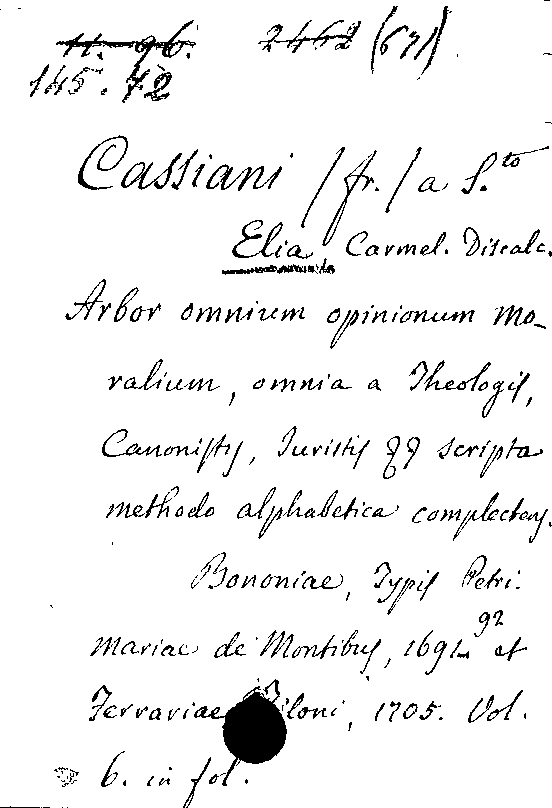 11. 96. 2462 (671)
145. 72
Cassiani /fr./ a S.to
Elia, Carmel. Discalc.
Arbor omnium opinionum mo-
ralium, omnia a Theologis,
Canonistis, Iuristis qq scripta
methodo alphabetica complectens.
Bononiae, Typis Petri.
Mariae de Montibus, 1691 92 et
Ferrariae loni, 1705. Vol.
6. in fol.